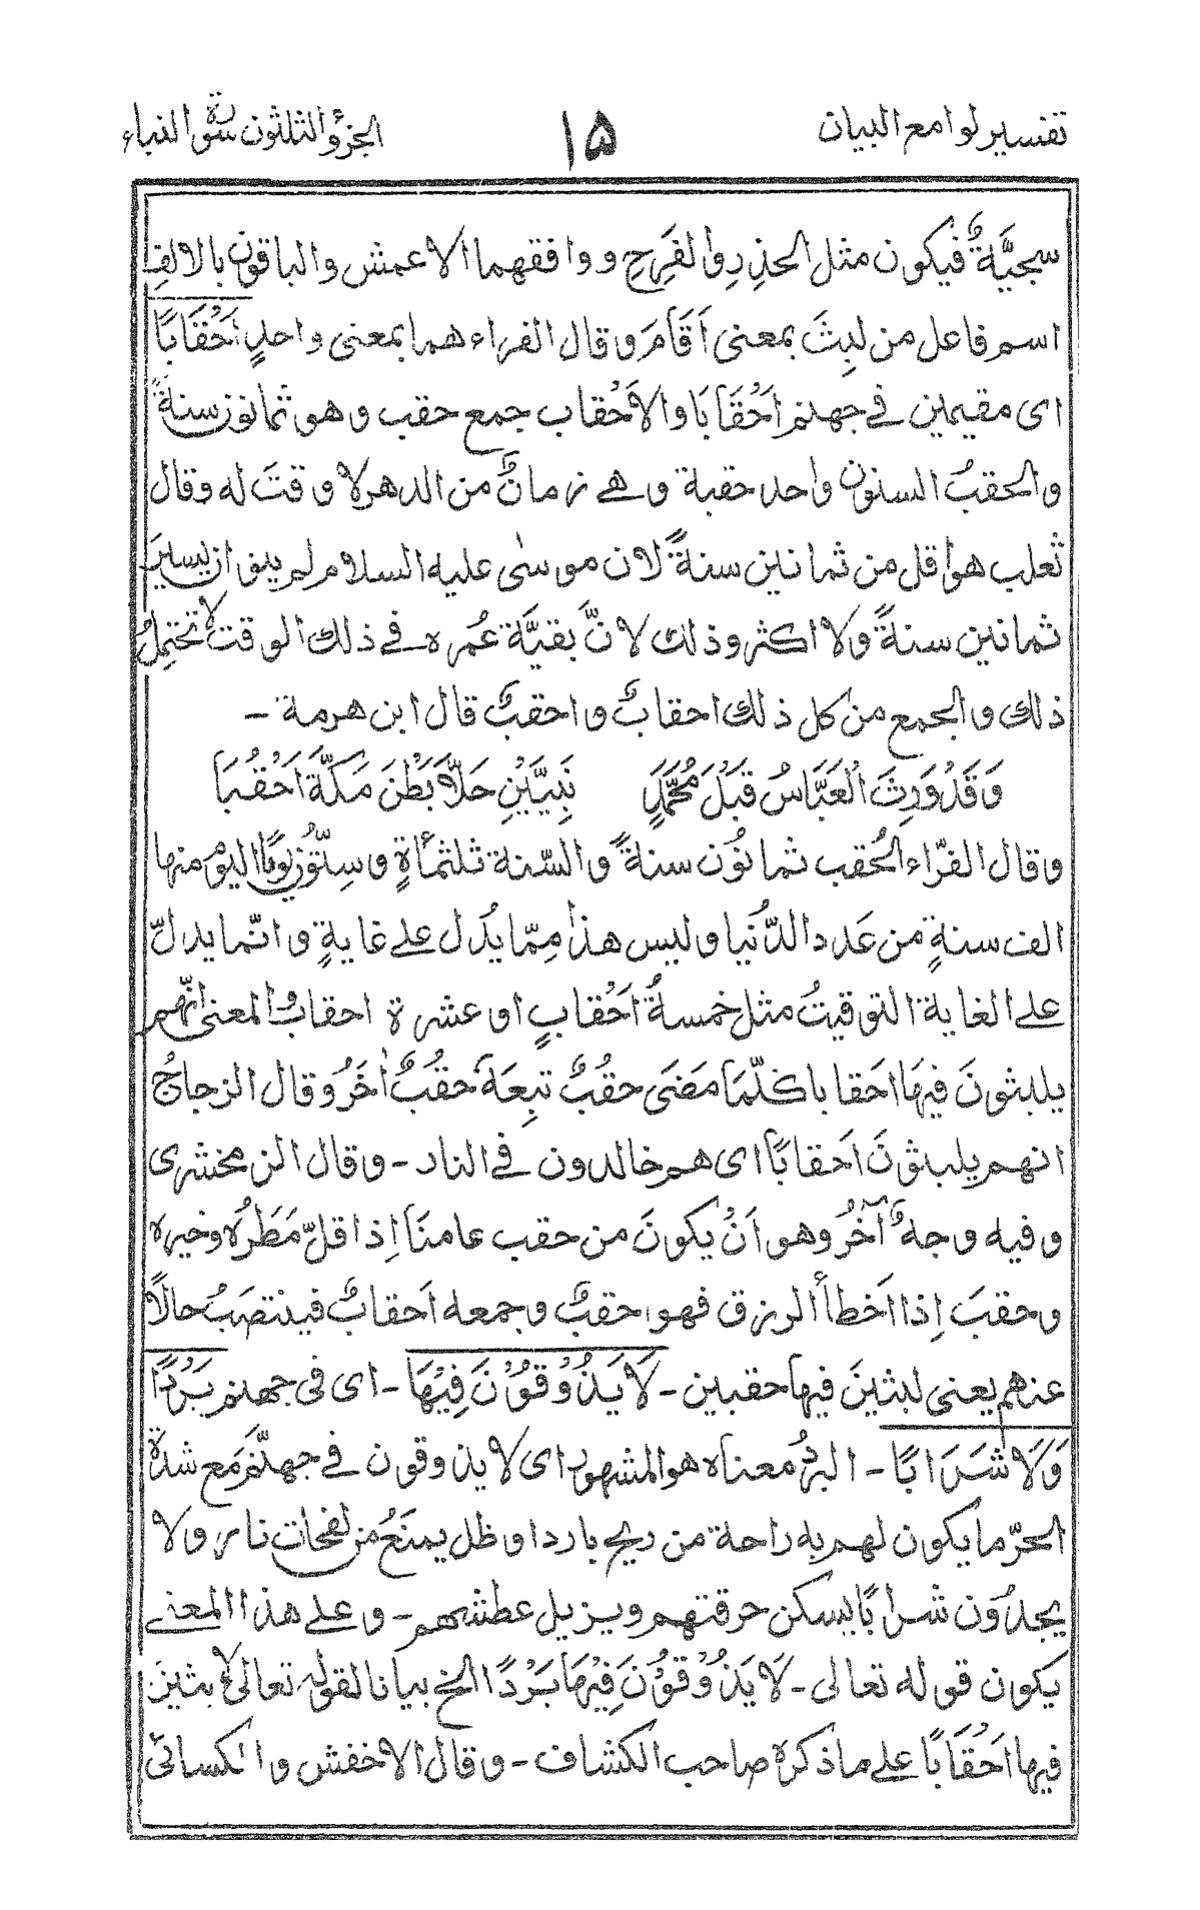 تفسير لوامع البيان
۱۵
الجزؤ الثلثون سورة النباء
سجيَّةٌ فيكون مثل الحذِرِ والفَرِحِ ووافقهما الاعمش والباقون بالالفِ
اسم فاعل من لبِثَ بمعنى اَقَامَ وقال الفراء هما بمعنى واحدٍ اَحْقَابًا
اى مقيمين فى جهنم اَحْقَابَا والاَحْقاب جمع حقب وهو ثمانون سنةً
والحقبُ السنون واحد حقبة وهى زمانٌ من الدهر لا وقتَ له وقال
ثعلب هو اقل من ثمانين سنةً لان موسىٰ عليه السلام لم ينو ان يسيرَ
ثمانين سنةً ولا اكثر وذلك لانَّ بقيَّة عُمره فى ذلك الوقت لا تحتمِلُ
ذلك والجمع من كل ذلك احقابٌ واحقبٌ قال ابن هرمة –
وَقَدْ وَرِثَ الْعَبَّاسُ قَبْلَ مُحَمَّدٍ نَبِيَّيْنِ حَلَّا بَطْنَ مَكَّةَ اَحْقُبَا
وقال الفرّاء الحُقب ثمانون سنةً والسّنة ثلثمأةٍ وسِتّون يومًا اليوْم منها
الف سنةٍ من عَدد الدُّنيا وليس هذا مِمّا يدُل على غايةٍ وانّما يدلّ
على الغاية التوقيتُ مثل خمسةُ اَحْقابٍ او عشرة احقابٍ والمعنى انّهم
يلبثونَ فيهَا احَقابا كلّمَا مَضَى حقبٌ تبِعَهَ حقبٌ اٰخَرُ وقال الزجاجُ
انهم يلبثونَ اَحقابًا اى هم خالدون فى النار – وقال الزمخشرى
وفيه وجهٌ آخرُ وهو اَنْ يكونَ من حقب عامنَا اِذا قلّ مَطَرُه وخيره
وحقبَ اِذا اَخطأ الرزق فهو حقبٌ وجمعه اَحقابٌ فينتصبُ حالًا
عنهم يعنى لبثينَ فيها حقبين – لَا يَذُوْقُوْنَ فِيْهَا – اى فى جهنم بَرْدًا
وَّلَا شَرَابًا – البردُ معناه هو المشهور اى لا يذوقون فى جهنَّم مَع شدة
الحرّ ما يكون لهم به راحة من ريح بارد او ظل يمنَعُ من لفحات نار ولا
يجدُون شرابًا يسكن حرقتهم ويزيل عطشهم – وعلى هذا المعنى
يكون قوله تعالى – لَا يَذُوْقُوْنَ فِيْهَا بَرْدًا الخ بيانا لقوله تعالى لابثينَ
فيها اَحْقَابًا على ما ذكرهٗ صاحب الكشاف – وقال الاخفش والكسائى